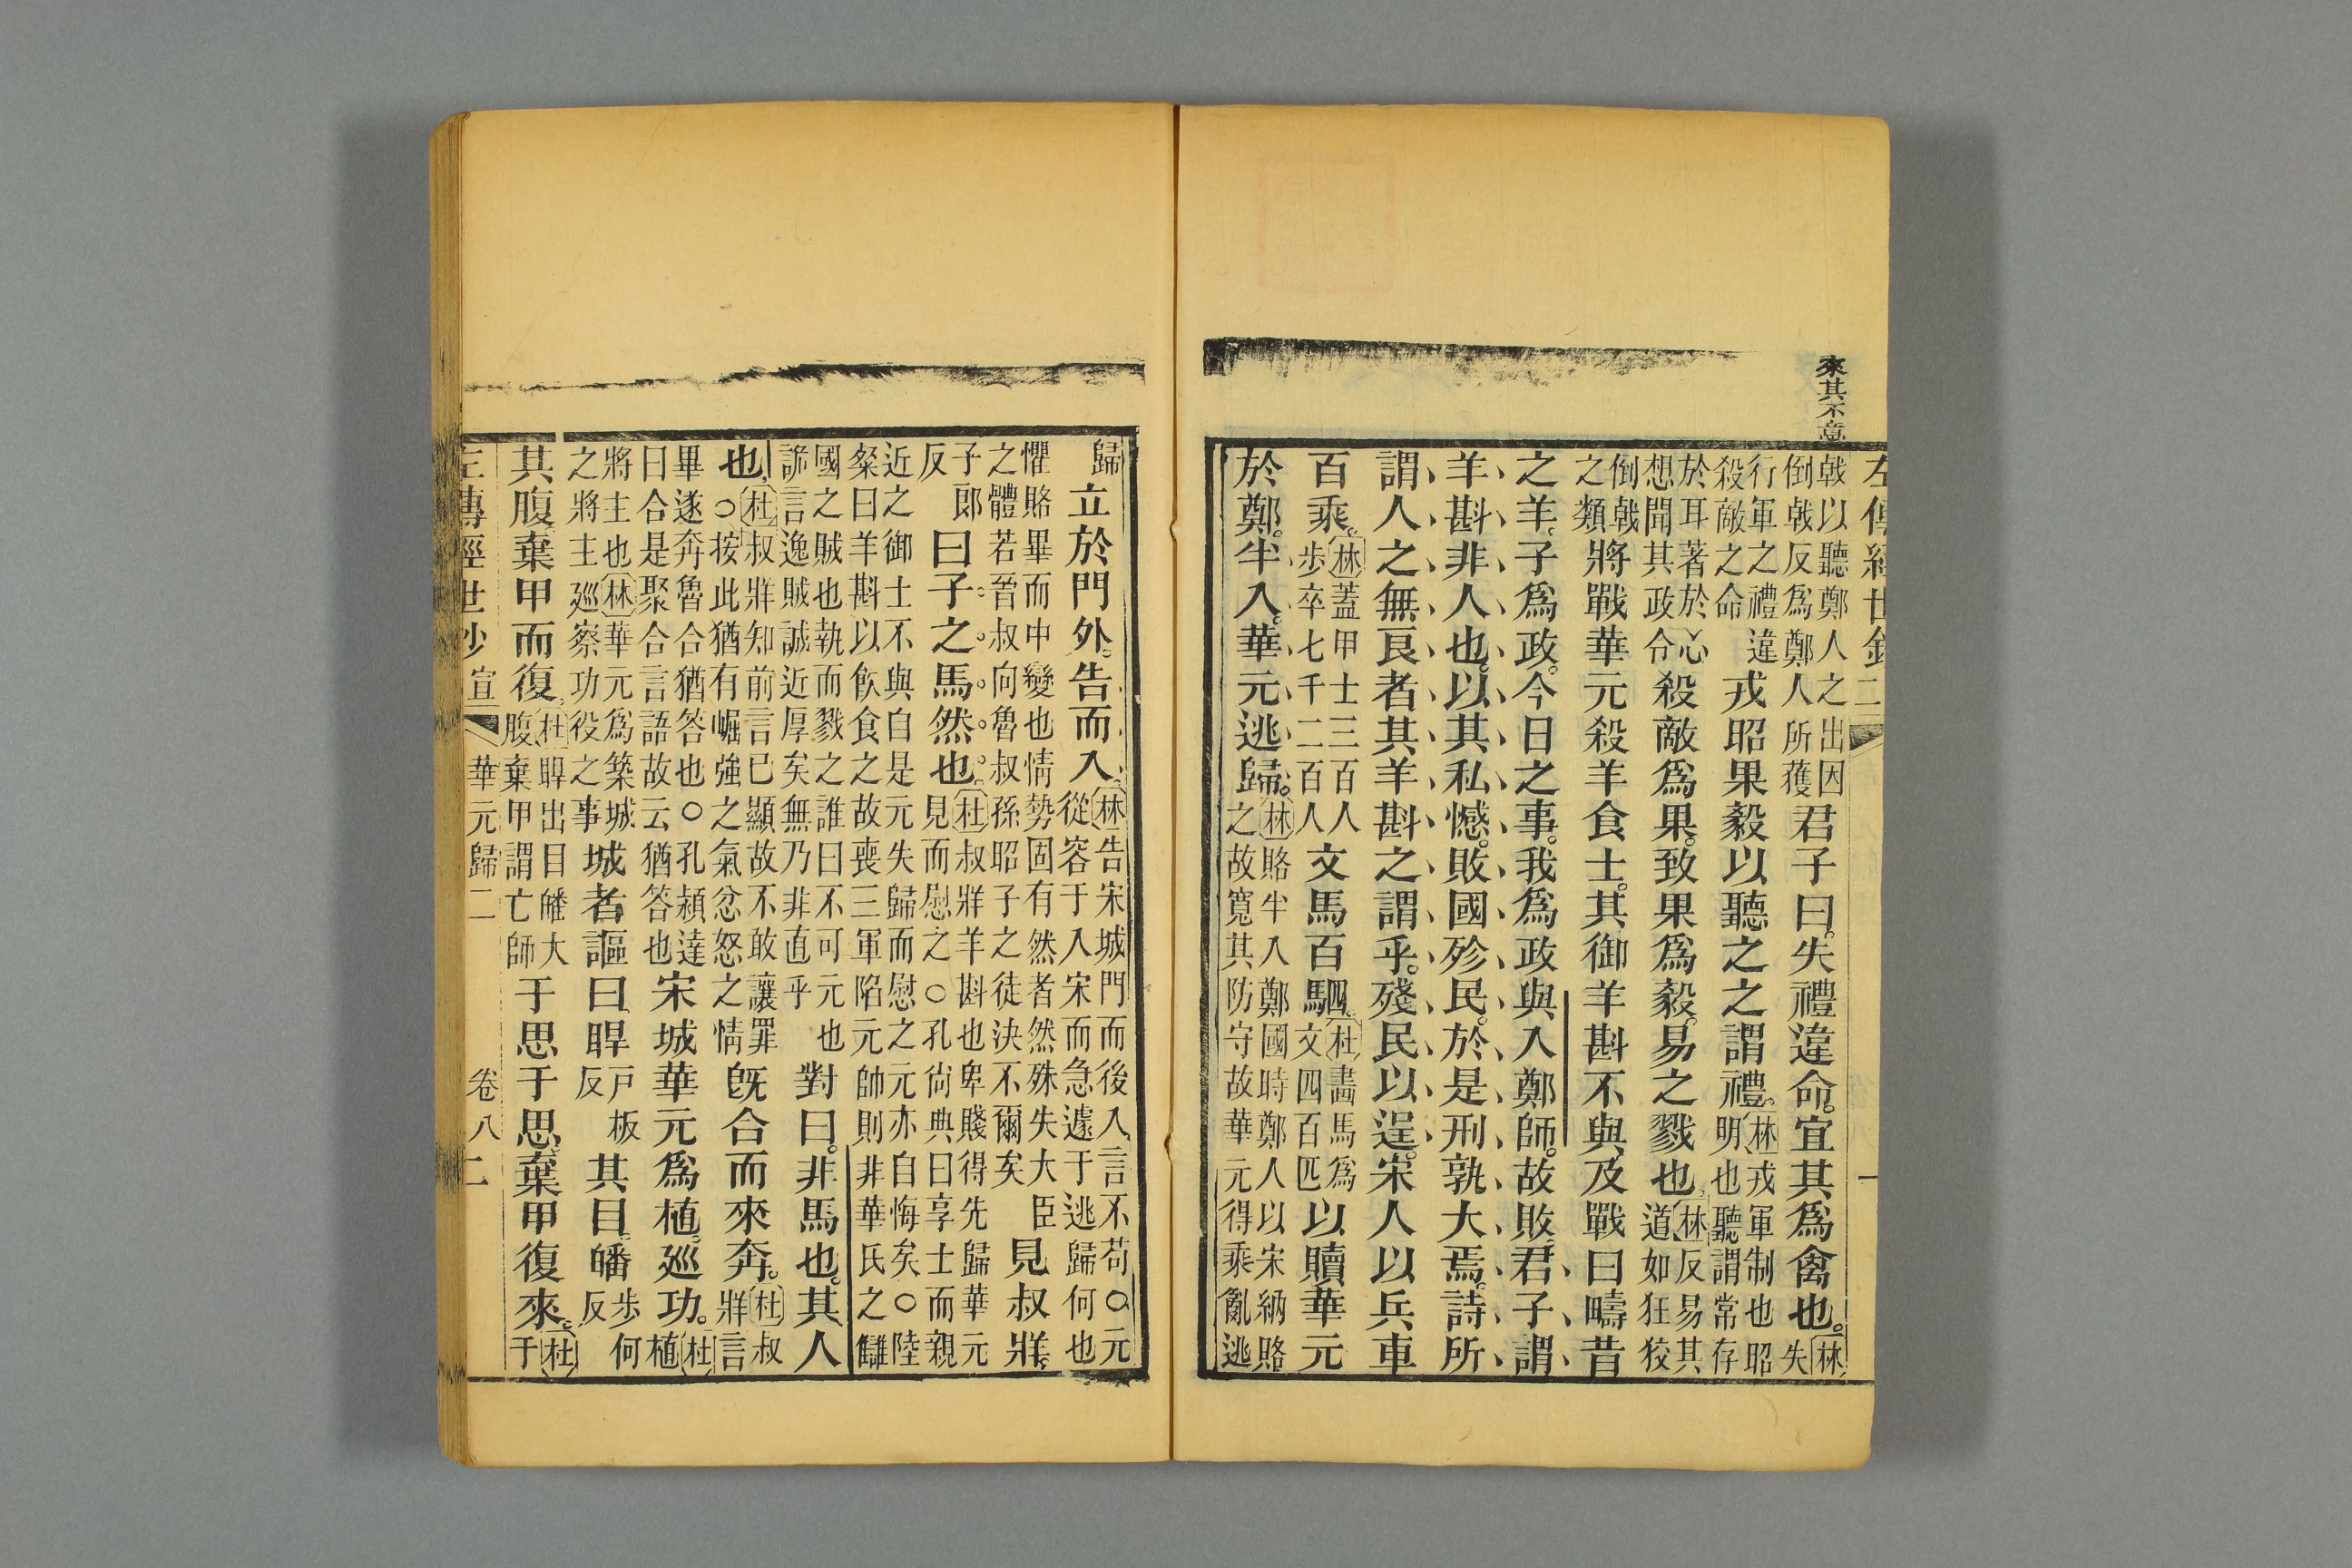 來其不意
左傳經世鈔二
戟以聽鄭人之出因
倒戟反爲鄭人所獲
君子曰失禮違命宜其爲禽也
林
失
行軍之禮違
殺敵之命
戎昭果毅以聽之之謂禮
林戎軍制也昭
明也聽謂常存
於耳著於心
想聞其政令
殺敵爲果致果爲毅易之戮也
林反易其
道如狂狡
倒戟
之類
將戰華元殺羊食士其御羊斟不與及戰曰疇昔
之羊子爲政今日之事我爲政與入鄭師故敗君子謂
羊斟非人也以其私憾敗國殄民於是刑孰大焉詩所
謂人之無良者其羊斟之謂乎殘民以逞宋人以兵車
百乘
林蓋甲士三百人
步卒七千二百人
文馬百駟
杜畵馬爲
文四百匹
以贖華元
於鄭半入華元逃歸
林賂半入鄭國時鄭人以宋納賂
之故寬其防守故華元得乘亂逃
歸
立於門外告而入
林告宋城門而後入言不苟○元
從容于入宋而急遽于逃歸何也
懼賂畢而中變也情勢固有然者然殊失大臣
之體若晉叔向魯叔孫昭子之徒決不爾矣
見叔牂
子郎
反
曰子之馬然也
杜叔牂羊斟也卑賤得先歸華元
見而慰之○孔尙典曰享士而親
近之御士不與自是元失歸而慰之元亦自悔矣○陸
粲曰羊斟以飮食之故喪三軍陷元帥則非華氏之讎
國之賊也執而戮之誰曰不可元也
詭言逸賊誠近厚矣無乃非直乎
對曰非馬也其人
也
杜叔牂知前言已顯故不敢讓罪
○按此猶有崛強之氣忿怒之情
旣合而來奔
杜叔
牂言
畢遂奔魯合猶答也○孔頴達
曰合是聚合言語故云猶答也
宋城華元爲植巡功
杜
植
將主也林華元爲築城
之將主廵察功役之事
城者謳曰睅
戸板
反
其目皤
步何
反
其腹棄甲而復
杜睅出目皤大
腹棄甲謂亡師
于思于思棄甲復來
杜
于
左傳經世鈔 宣 華元歸二 卷八 二